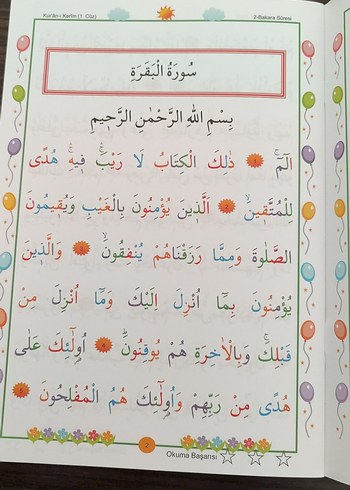 Kur'ân-ı Kerîm (1. Cüz) 2-Bakara Sûresi
سُورَةُ الْبَقَرَةِ
بِسْمِ اللهِ الرَّحْمٰنِ الرَّحِيمِ
الٓمٓۚ ١ ذٰلِكَ الْكِتَابُ لَا رَيْبَۚ ف۪يهِۚ هُدًى
لِلْمُتَّق۪ينَۙ ٢ اَلَّذ۪ينَ يُؤْمِنُونَ بِالْغَيْبِ وَيُق۪يمُونَ
الصَّلٰوةَ وَمِمَّا رَزَقْنَاهُمْ يُنْفِقُونَۙ ٣ وَالَّذ۪ينَ
يُؤْمِنُونَ بِمَٓا اُنْزِلَ اِلَيْكَ وَمَٓا اُنْزِلَ مِنْ
قَبْلِكَۚ وَبِالْاٰخِرَةِ هُمْ يُوقِنُونَۜ ٤ اُو۬لٰٓئِكَ عَلٰى
هُدًى مِنْ رَبِّهِمْ وَاُو۬لٰٓئِكَ هُمُ الْمُفْلِحُونَ ٥
2
Okuma Başarısı